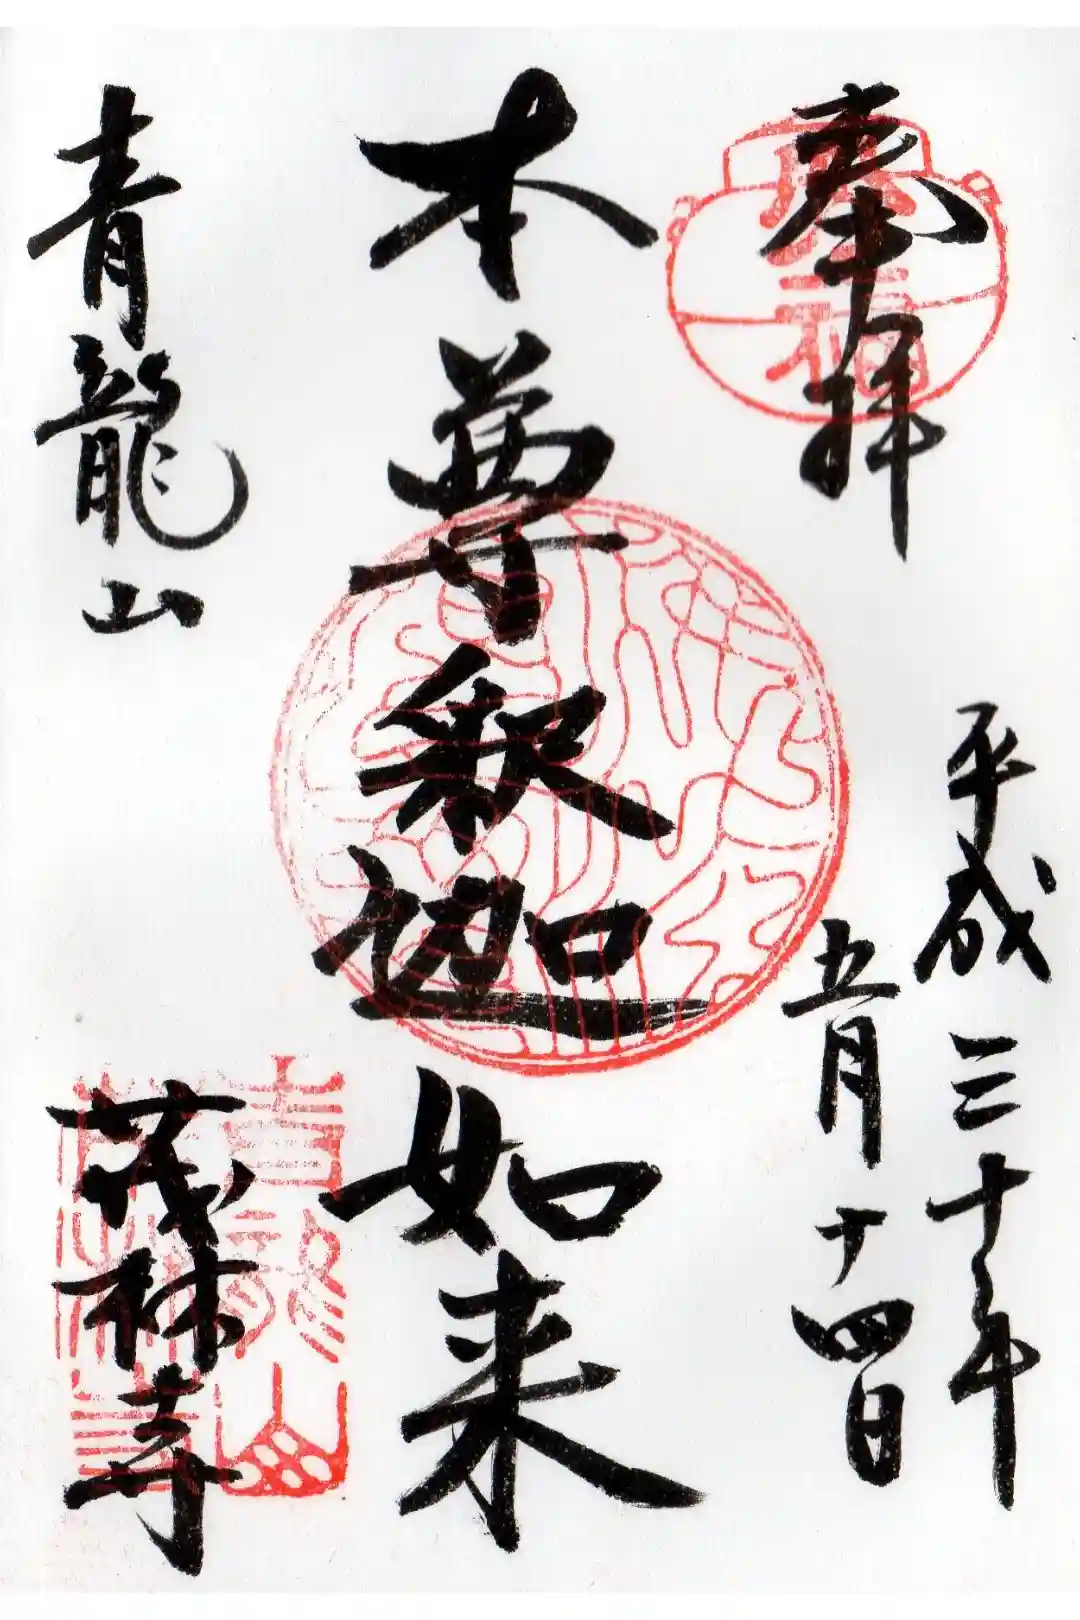 奉拝
平成三十年
五月十四日
本尊釈迦如来
青龍山
茂林寺